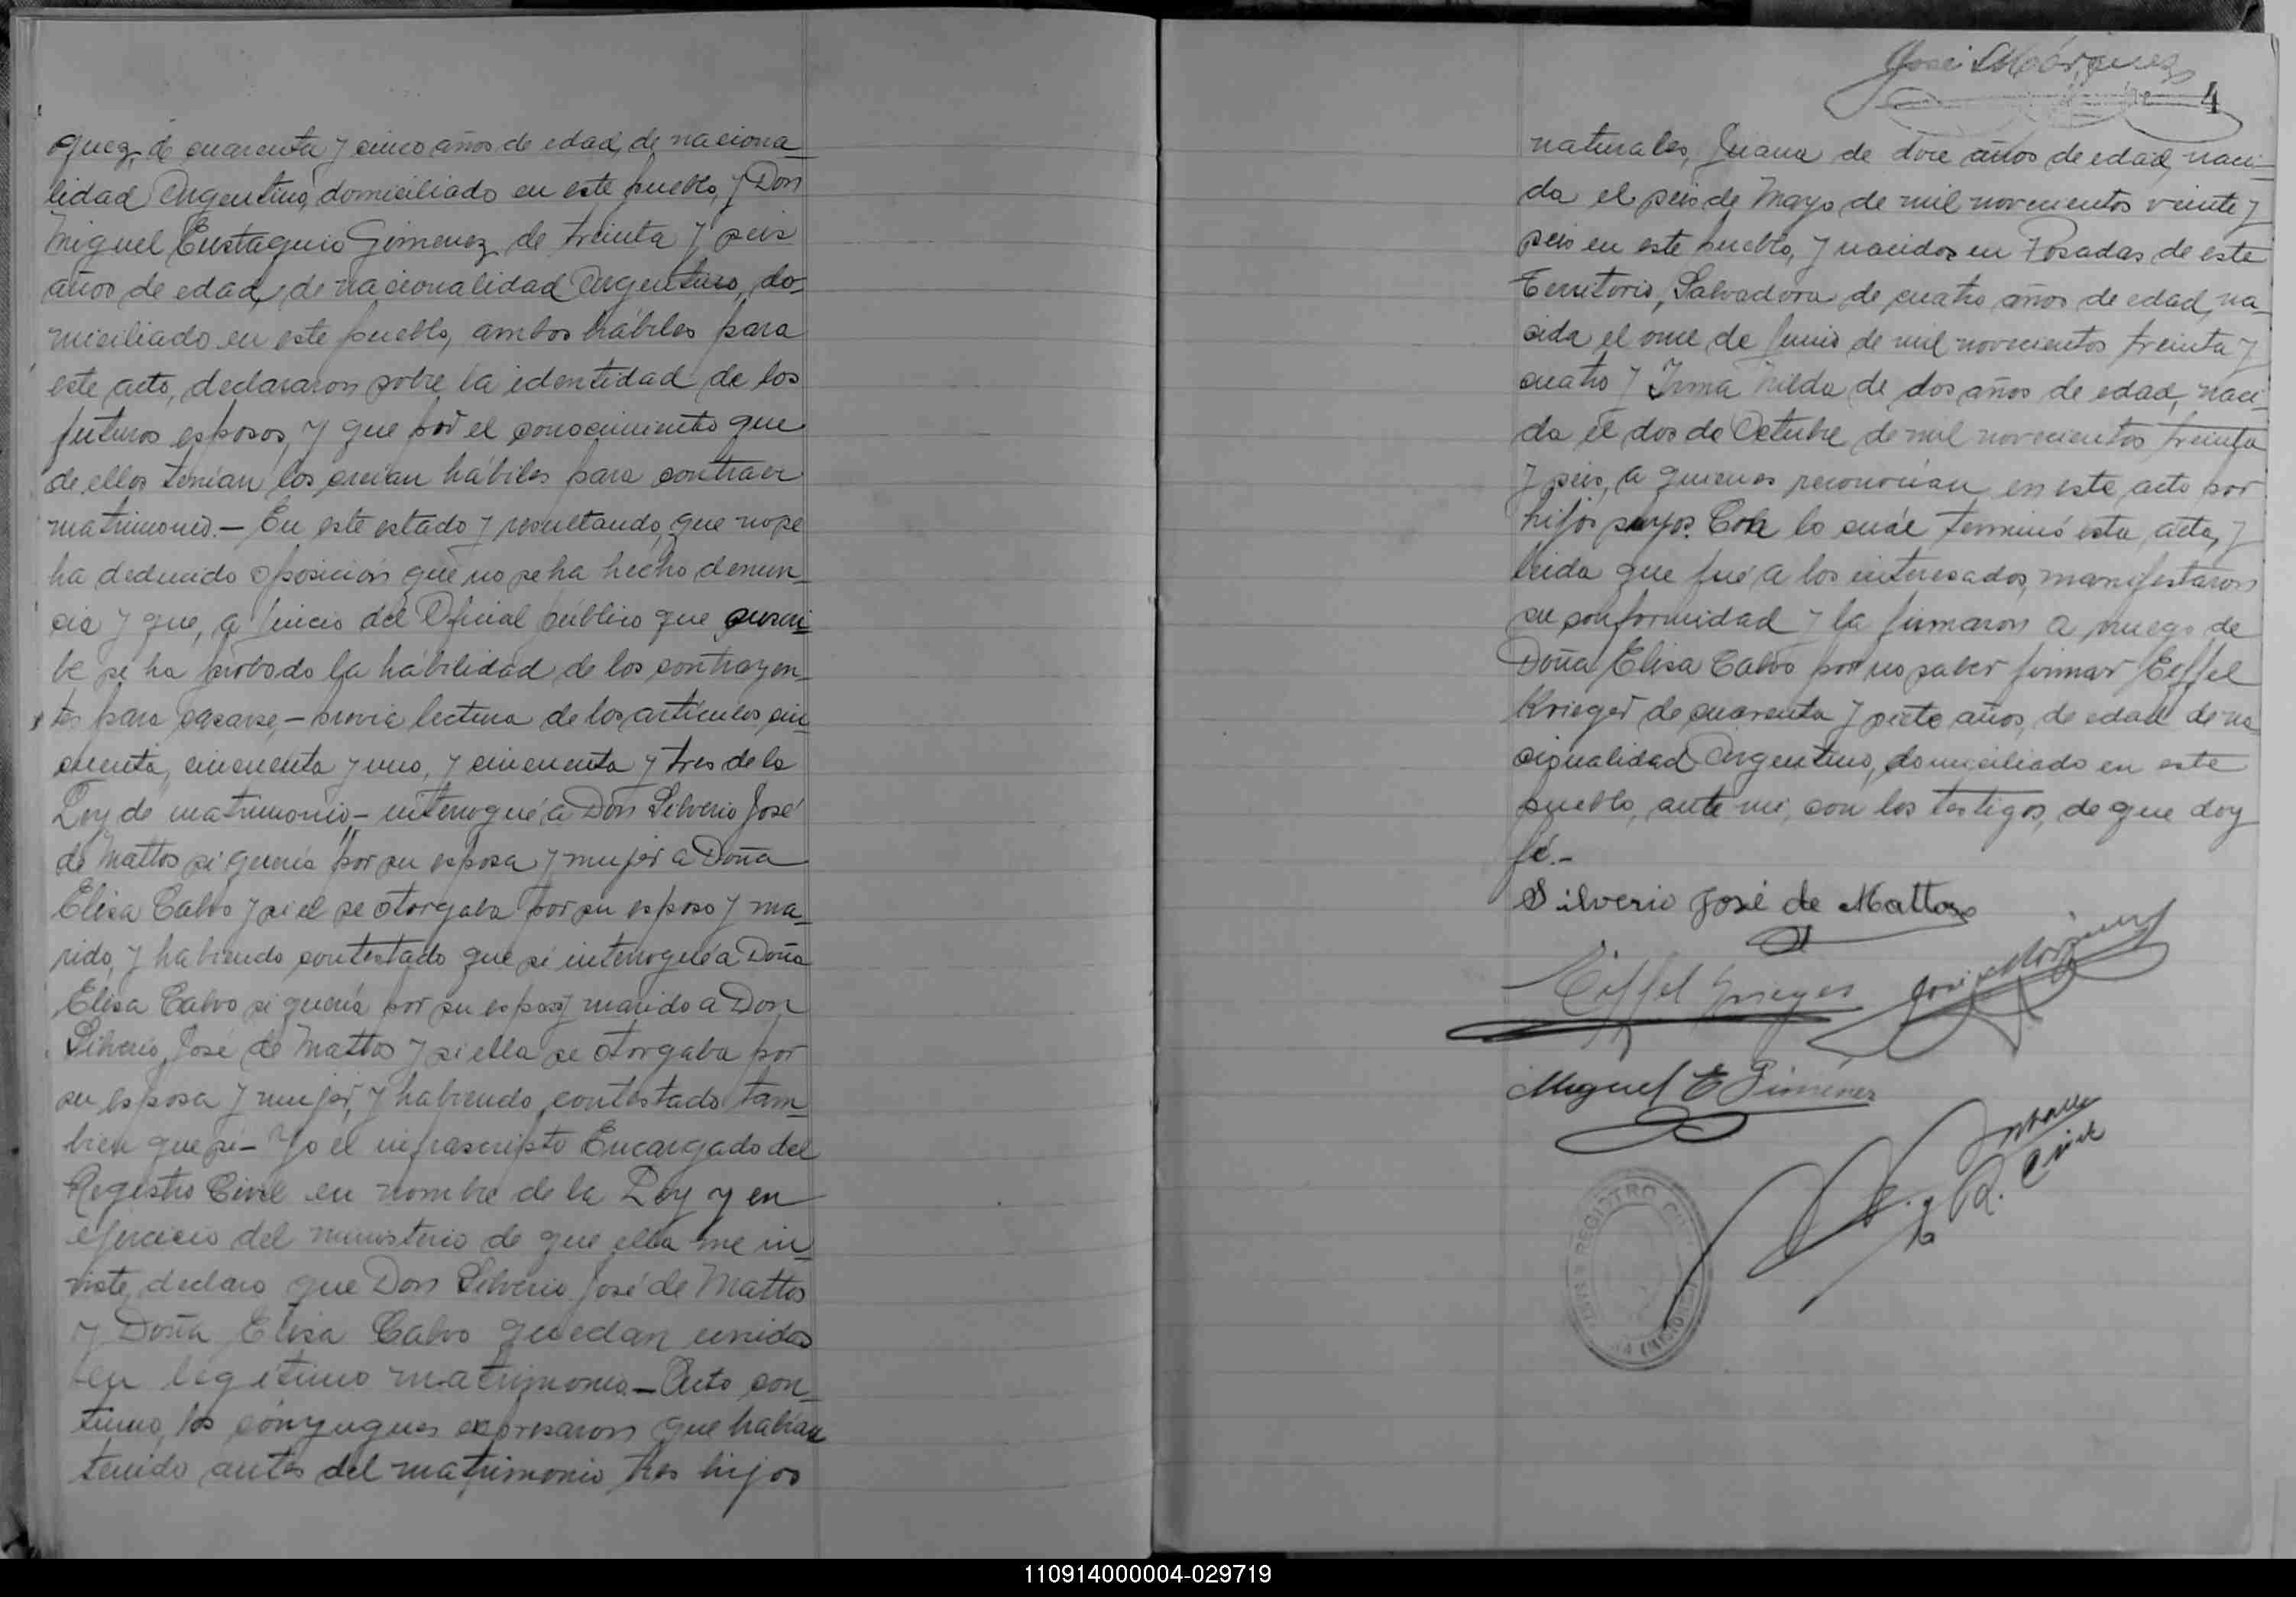 quez, de cuarenta y cinco años de edad, de naciona-
lidad Argentino, domiciliado en este pueblo, y Don
Miguel Eustaquio Gimenez, de treinta y seis
años de edad, de nacionalidad Argentino, do-
miciliado en este pueblo, ambos hábiles para
este acto, declararon sobre la identidad de los
futuros esposos, y que por el conocimiento que
de ellos tenían los creían hábiles para contraer
matrimonio.- En este estado y resultando, que no se
ha deducido oposición que no se ha hecho denun-
cia y que, a juicio del Oficial público que suscri-
be se ha probado la habilidad de los contrayen-
tes para casarse,- previa lectura de los artículos cin-
cuenta, cincuenta y uno, y cincuenta y tres de la
Ley de matrimonio,- interrogué a Don Silverio José
de Mattos si quería por su esposa y mujer a Doña
Elisa Calvo y si el se otorgaba por su esposo y ma-
rido, y habiendo contestado que sí interrogué a Doña
Elisa Calvo si quería por su esposo y marido a Don
Silverio José de Mattos y si ella se otorgaba por
su esposa y mujer, y habiendo contestado tam-
bien que sí- Yo el infrascripto Encargado del
Registro Civil en nombre de la Ley y en
ejercicio del ministerio de que ella me in-
viste, declaro que Don Silverio José de Mattos
y Doña Elisa Calvo quedan unidos
en legítimo matrimonio.- Acto con-
tinuo, los cónyugues expresaron que habían
tenido antes del matrimonio tres hijos
José Márquez
4
naturales, Juana de doce años de edad, naci-
da el seis de Mayo de mil novecientos veinte y
seis en este pueblo, y nacidos en Posadas de este
Territorio, Salvadora de cuatro años de edad, na-
cida el once de Junio de mil novecientos treinta y
cuatro y Irma Nilda de dos años de edad, naci-
da el dos de Octubre de mil novecientos treinta
y seis, a quienes reconocían en este acto por
hijos suyos. Con lo cuál terminó esta acta, y
leida que fué a los interesados, manifestaron
su conformidad y la firmaron a ruego de
Doña Elisa Calvo por no saber firmar Eiffel
Krieger de cuarenta y siete años, de edad de na
cionalidad Argentino, domiciliado en este
pueblo, ante mi, con los testigos, de que doy
fé.-
Silverio José de Mattos
Eiffel Krieger
José Márquez
Miguel E Gimenez
R. Civil
REGISTRO CIVIL
110914000004-029719